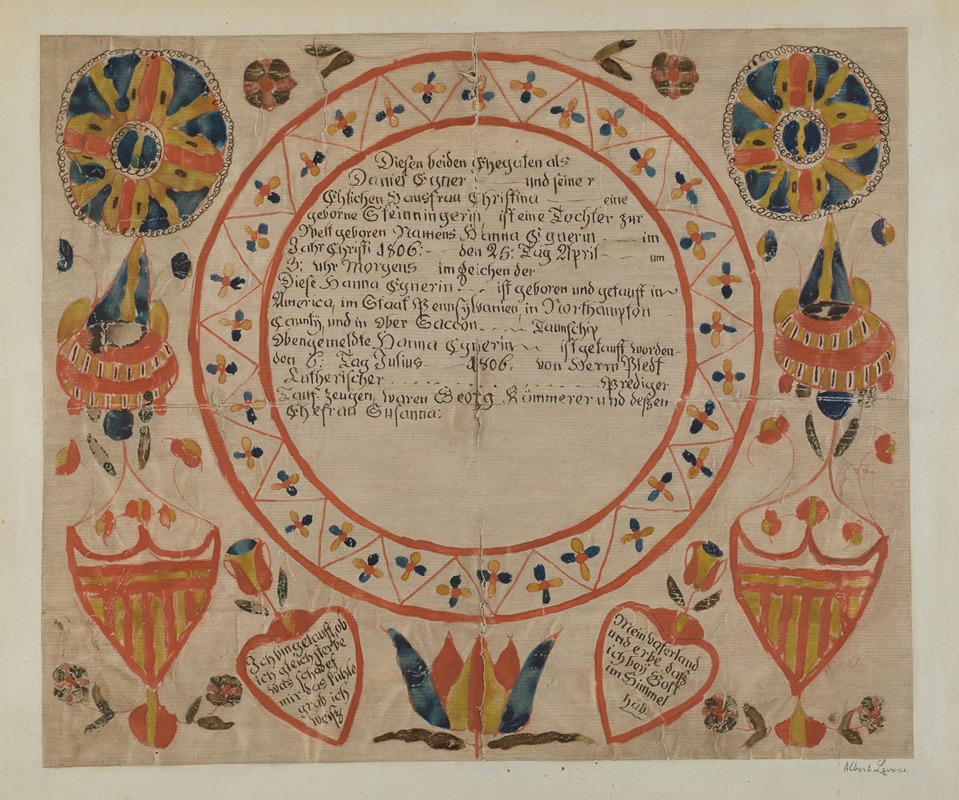 Diesen beiden Ehegaten als
Daniel Egner und seiner
Ehlichen Hausfrau Christina eine
geborne Steinningerin, ist eine Tochter zur
Welt geboren Namens Hanna Egnerin im
Jahr Christi 1806: den 25: Tag April um
3: uhr Morgens im Zeichen der
Diese Hanna Egnerin ist geboren und getauft in
America, im Staat Pennsylvanien, in Northampton
Caunty, und in Ober Sacon Taunschip
Obengemeldte Hanna Egnerin ist getauft worden
den 6: Tag Julius 1806. von Herrn
Lutherischer Prediger,
Tauf-zeugen, waren Georg Römmerer und deßen
Ehefrau Susanna:
Ich bin getauft, ob
ich gleich sterbe
was schadet
mir das kühle
grab ich
weiß
Mein Vaterland
und erbe daß
ich beÿ Gott
im Himmel
hab
Albert Levone